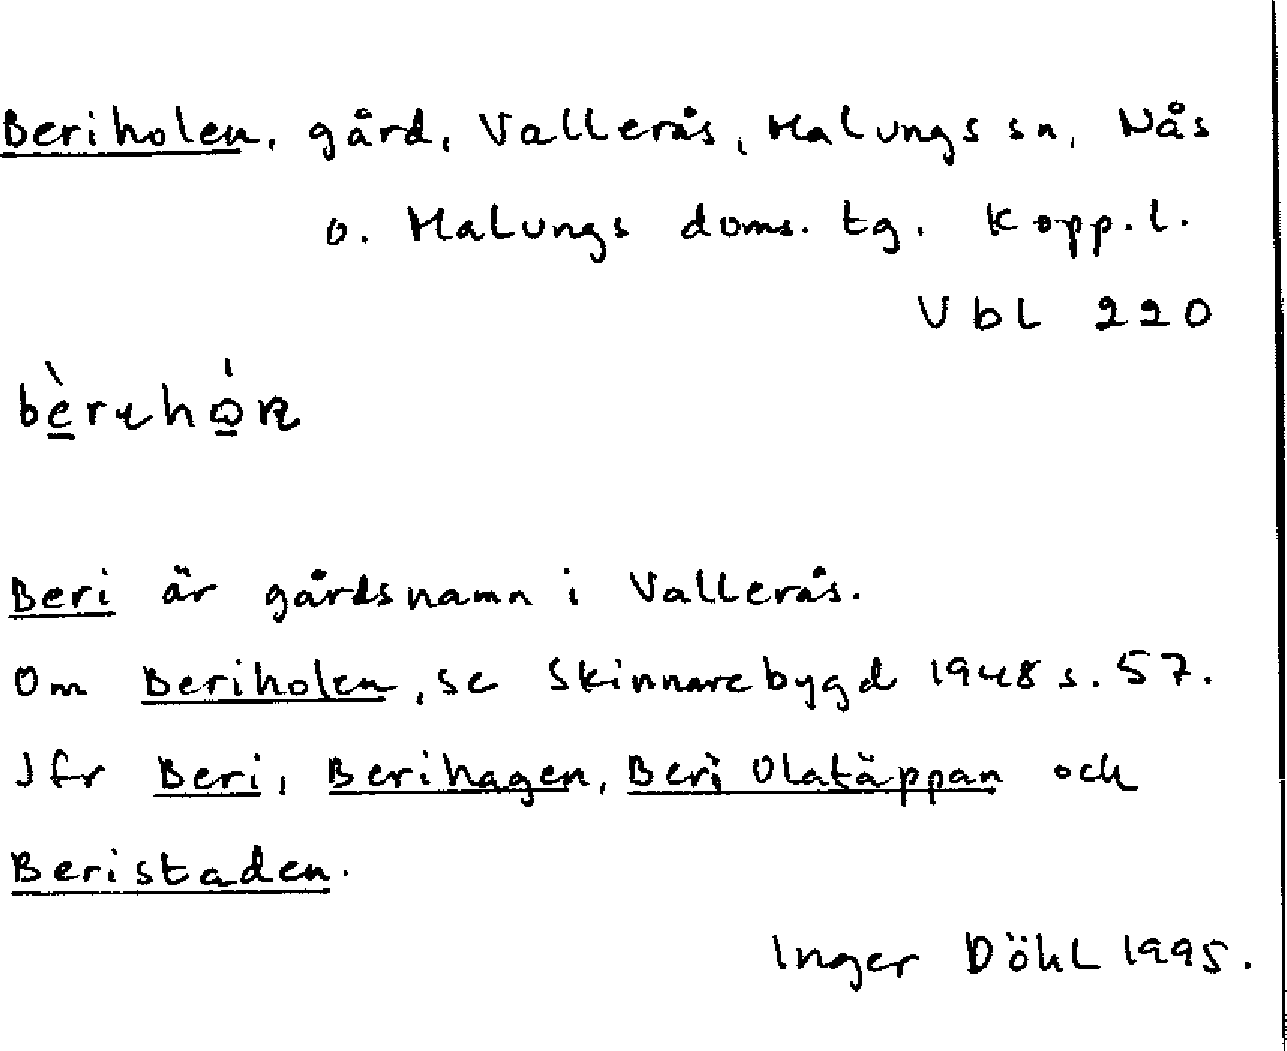 Beriholen, gård, Vallerås, Malungs sn, Nås
o. Malungs doms. tg. Kopp.l.
Vbl 220
Beri är gårdsnamn i Vallerås.
Om Beriholen, se Skinnarebygd 1948 s. 57.
Jfr Beri, Berihagen, Beri Olatäppan och
Beristaden.
Inger Döhl 1995.